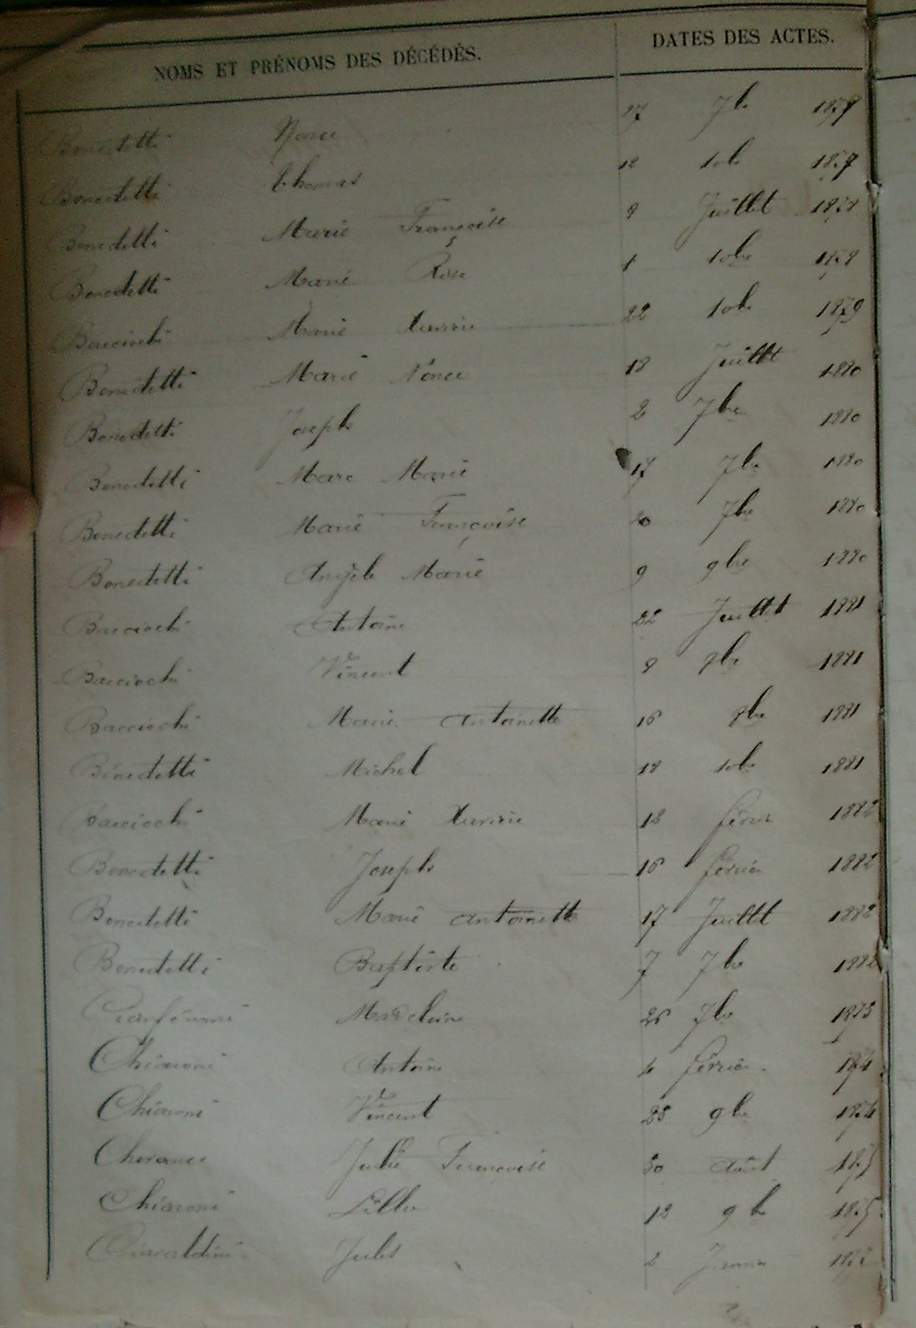 NOMS ET PRÉNOMS DES DÉCÉDÉS. DATES DES ACTES.
Benedetti Nonce 17 7bre
Benedetti Thomas 12 10bre
Benedetti Marie Françoise 8 Juillet 1878
Benedetti Marie Rose 1 10bre 1878
Bacciochi Marie Xavière 22 10bre 1879
Benedetti Marie Nonce 18 Juillet 1880
Benedetti Joseph 2 7bre 1880
Benedetti Marc Marie 17 7bre 1880
Benedetti Marie Françoise 20 7bre 1880
Benedetti Angèle Marie 9 9bre 1880
Bacciochi Antoine 22 Juillet 1881
Bacciochi Vincent 8 8bre 1881
Bacciochi Marie Antoinette 16 8bre 1881
Benedetti Michel 18 10bre 1881
Bacciochi Marie Xavière 18 février 1882
Benedetti Joseph 16 février 1882
Benedetti Marie Antoinette 17 Juillet 1882
Benedetti Baptiste 7 7bre 1882
Madeleine 26 7bre 1873
Chiaroni Antoine 4 février 1874
Chiaroni Vincent 28 9bre 1874
Julie Françoise 30 Août 1875
Chiaroni 12 9bre 1875
Ciavaldini Jules 2